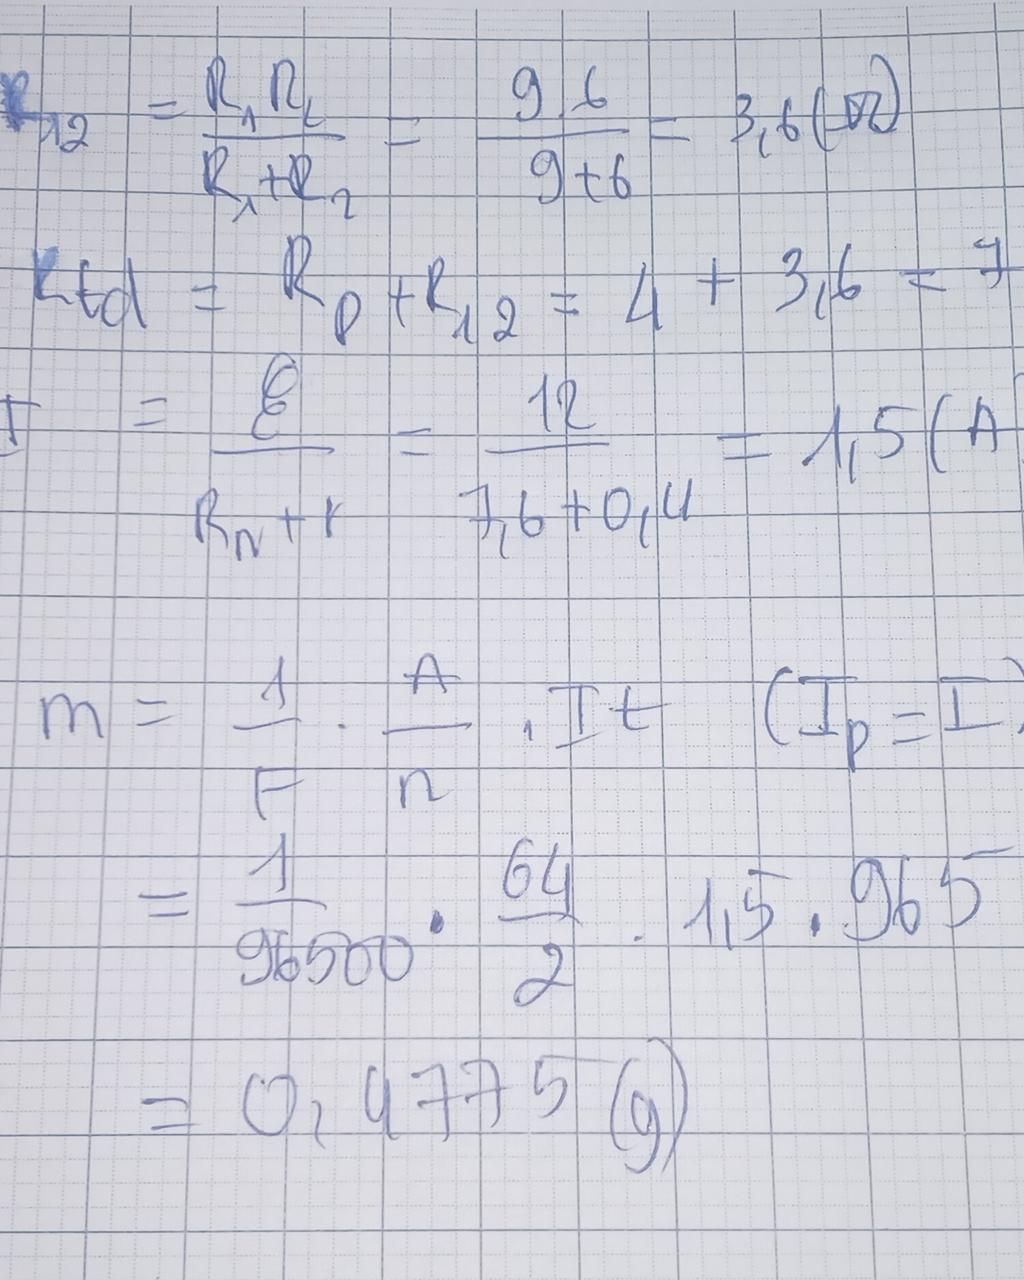 R₁₂ = R₁R₂ / R₁+R₂ = 9.6 / 9+6 = 3,6(Ω)
Rtd = Rp + R₁₂ = 4 + 3,6 = 7
I = ℰ / RN + r = 12 / 7,6+0,4 = 1,5 (A
m = 1 / F . A / n . It (Ip = I)
= 1 / 96500 . 64 / 2 . 1,5 . 965
= 0,4775 (g)